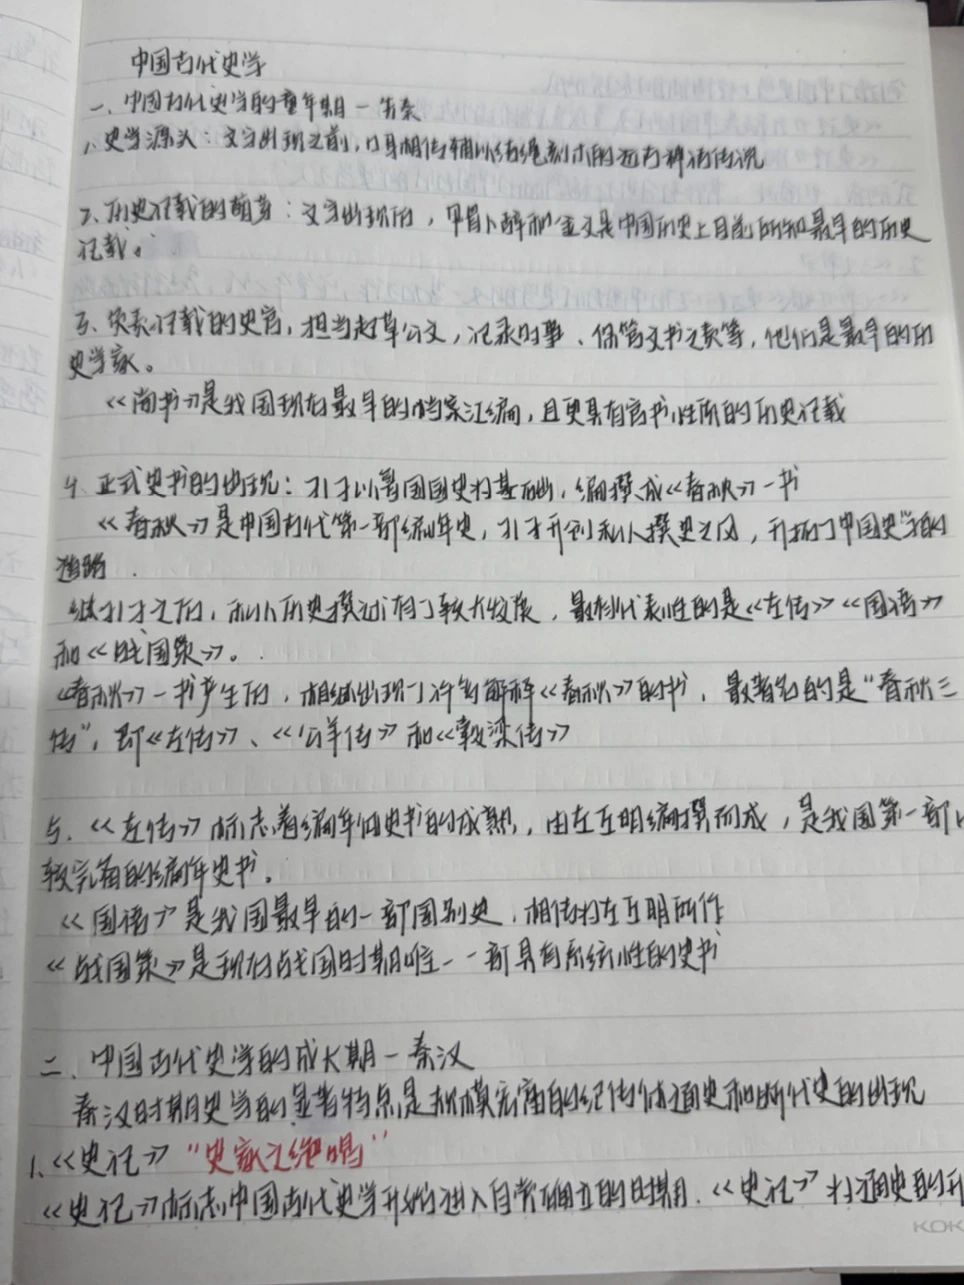 中国古代史学
一、中国古代史学的童年期—先秦
1、史学源头：文字出现之前，口耳相传辅以结绳刻木的远古神话传说
2、历史记载的萌芽：文字出现后，甲骨卜辞和金文是中国历史上目前所知最早的历史
记载。
3、负责记载的史官，担当起草公文，记录时事、保管文书之责等，他们是最早的历
史学家。
《尚书》是我国现存最早的档案汇编，且更具有官书性质的历史记载
4、正式史书的出现：孔子以鲁国国史为基础，编撰成《春秋》一书
《春秋》是中国古代第一部编年史，孔子开创私人撰史之风，开拓了中国史学的
道路.
继孔子之后，私人历史撰述有了较大发展，最有代表性的是《左传》《国语》
和《战国策》。
《春秋》一书产生后，相继出现了许多解释《春秋》的书，最著名的是“春秋三
传”，即《左传》、《公羊传》和《穀梁传》
5、《左传》标志着编年体史书的成熟，由左丘明编撰而成，是我国第一部
较完备的编年史书。
《国语》是我国最早的一部国别史，相传为左丘明所作
《战国策》是现存战国时期唯一一部具有系统性的史书
二、中国古代史学的成长期—秦汉
秦汉时期史学的显著特点是规模宏富的纪传体通史和断代史的出现
1、《史记》“史家之绝唱”
《史记》标志中国古代史学开始进入自觉确立的时期.《史记》为通史的开
KOK